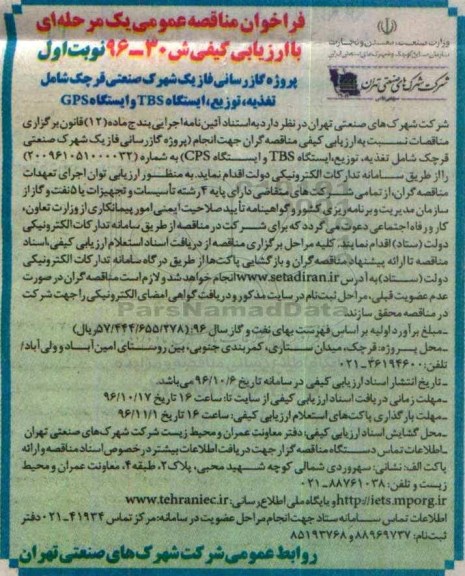 فراخوان مناقصه عمومی یک مرحله‌ای
با ارزیابی کیفی ش ۳۰-۹۶ نوبت اول
پروژه گازرسانی فاز یک شهرک صنعتی قرچک شامل
تغذیه، توزیع، ایستگاه TBS و ایستگاه GPS
وزارت صنعت، معدن و تجارت
شرکت شهرک‌های صنعتی تهران
شرکت شهرک‌های صنعتی تهران در نظر دارد به استناد آئین‌نامه اجرایی بند ج ماده (۱۲) قانون برگزاری
مناقصات نسبت به ارزیابی کیفی مناقصه گران جهت انجام (پروژه گازرسانی فاز یک شهرک صنعتی
قرچک شامل تغذیه، توزیع، ایستگاه TBS و ایستگاه CPS) به شماره (۲۰۰۹۶۱۰۵۱۰۰۰۰۳۲)
را از طریق سامانه تدارکات الکترونیکی دولت اقدام نماید. به منظور ارزیابی توان اجرای تعهدات
مناقصه گران، از تمامی شرکت‌های متقاضی دارای پایه ۴ رشته تأسیسات و تجهیزات یا ۵ نفت و گاز از
سازمان مدیریت و برنامه ریزی کشور و گواهینامه تأیید صلاحیت ایمنی امور پیمانکاری از وزارت تعاون،
کار و رفاه اجتماعی دعوت می گردد که برای شرکت در مناقصه از طریق سامانه تدارکات الکترونیکی
دولت (ستاد) اقدام نمایند. کلیه مراحل برگزاری مناقصه از دریافت اسناد استعلام ارزیابی کیفی، اسناد
مناقصه تا ارائه پیشنهاد مناقصه گران و بازگشایی پاکت‌ها از طریق درگاه سامانه تدارکات الکترونیکی
دولت (ستاد) به آدرس www.setadiran.ir انجام خواهد شد و لازم است مناقصه گران در صورت
عدم عضویت قبلی، مراحل ثبت نام در سایت مذکور و دریافت گواهی امضای الکترونیکی را جهت شرکت
در مناقصه محقق سازند.
ParsNamadData
-مبلغ برآورد اولیه بر اساس فهرست بهای نفت و گاز سال ۹۶: (۷/۴۴۴/۶۵۵/۲۷۸ ریال)
-محل پروژه: قرچک، میدان ستاری، کمربندی جنوبی، بین روستای امین آباد و ولی آباد/
تلفن: ۳۶۱۹۴۶۰۰-۰۲۱
-تاریخ انتشار اسناد ارزیابی کیفی در سامانه تاریخ ۹۶/۱۰/۶ می‌باشد.
-مهلت زمانی دریافت اسناد ارزیابی کیفی از سایت تا: ساعت ۱۶ تاریخ ۹۶/۱۰/۱۷
-مهلت بارگذاری پاکت‌های استعلام ارزیابی کیفی: ساعت ۱۶ تاریخ ۹۶/۱۱/۱
-محل گشایش اسناد ارزیابی کیفی: دفتر معاونت عمران و محیط زیست شرکت شهرک های صنعتی تهران
-اطلاعات تماس دستگاه مناقصه گزار جهت دریافت اطلاعات بیشتر در خصوص اسناد مناقصه و ارائه
پاکت الف: نشانی: سهروردی شمالی کوچه شهید محبی، پلاک ۲، طبقه ۴، معاونت عمران و محیط
زیست و تلفن: ۸۸۷۶۱۰۳۸-۰۲۱
http://iets.mporg.ir و پایگاه ملی اطلاع رسانی: www.tehraniec.ir
اطلاعات تماس سامانه ستاد جهت انجام مراحل عضویت در سامانه: مرکز تماس ۴۱۹۳۴-۰۲۱ دفتر
ثبت نام: ۸۸۹۶۹۷۳۷ و ۸۵۱۹۳۷۶۸
روابط عمومی شرکت شهرک های صنعتی تهران